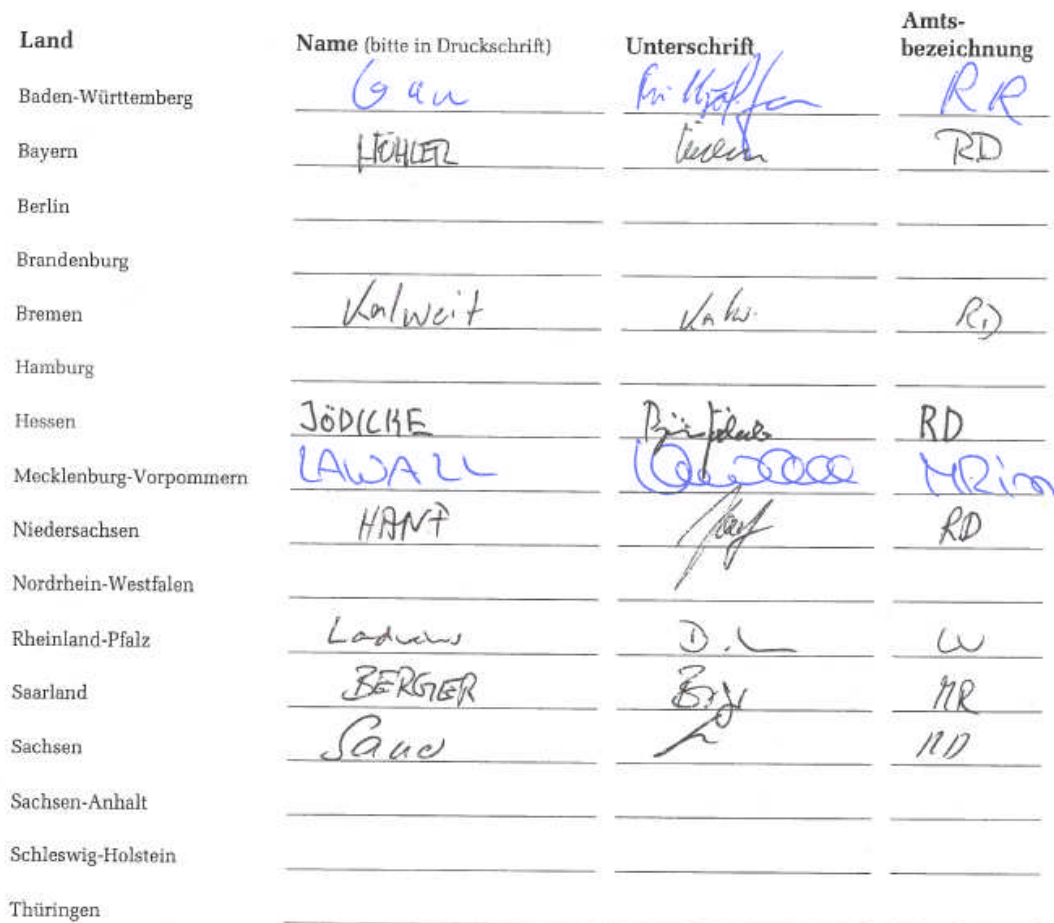 Land Name (bitte in Druckschrift) Unterschrift Amts-
bezeichnung
Baden-Württemberg RR
Bayern RD
Berlin
Brandenburg
Bremen Kalweit Kalw. RD
Hamburg
Hessen JÖDICKE RD
Mecklenburg-Vorpommern LAWALL MRin
Niedersachsen HANF RD
Nordrhein-Westfalen
Rheinland-Pfalz
Saarland BERGER MR
Sachsen RD
Sachsen-Anhalt
Schleswig-Holstein
Thüringen